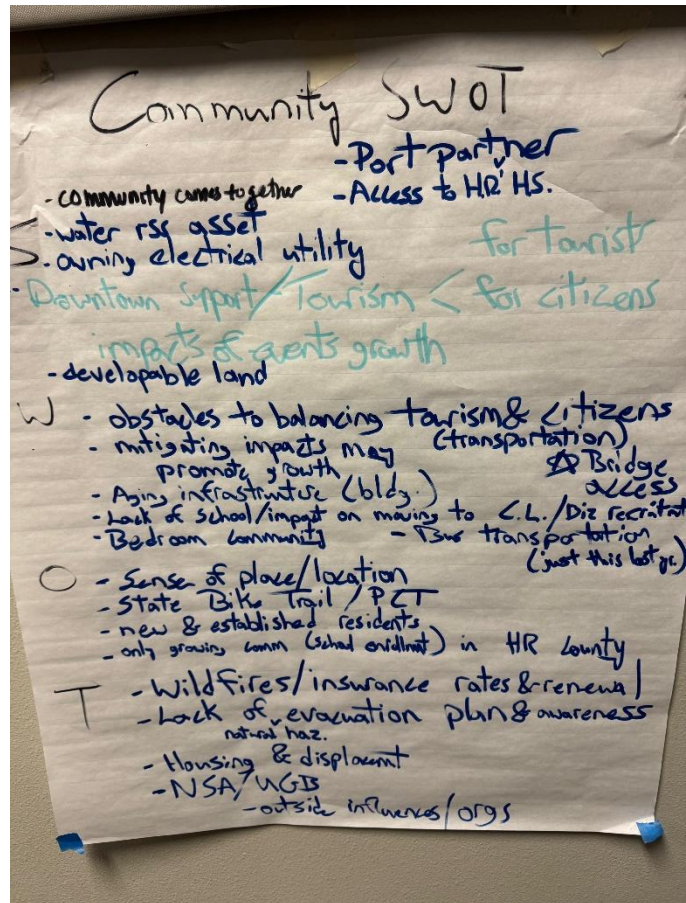 Community SWOT
- Port partner
- Access to HR HS.
- community comes together
S - water rss asset
- owning electrical utility
- Downtown Support/Tourism < for tourists
for citizens
impacts of events growth
- developable land
W - obstacles to balancing tourism & citizens
(transportation)
- mitigating impacts may
promote growth
☆ Bridge
access
- Aging infrastructure (bldg.)
- Lack of school/impact on moving to C.L./Biz recruitmt
- Bedroom community - Bus transportation
(just this last yr.)
O - Sense of place/location
- State Bike Trail / PCT
- new & established residents
- only growing comm (school enrollmnt) in HR County
T - Wildfires/insurance rates & renewal
- Lack of evacuation plan & awareness
natural haz.
- Housing & displacmnt
- NSA/UGB
- outside influences/orgs